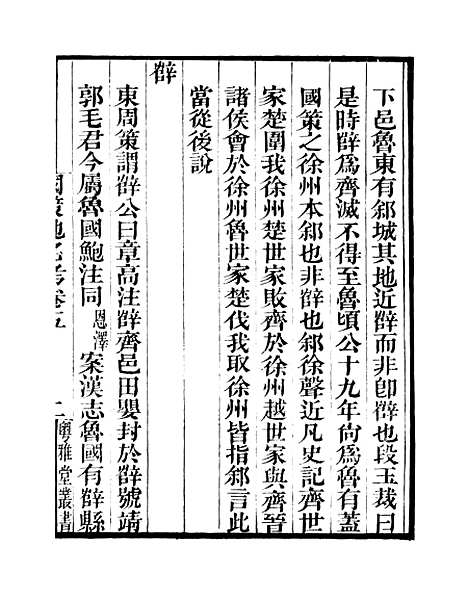 下邑魯東有䣄城其地近薛而非卽薛也段玉裁曰
是時薛爲齊滅不得至魯頃公十九年尙爲魯有葢
國策之徐州本䣄也非薛也䣄徐聲近凡史記齊世
家楚圍我徐州楚世家敗齊於徐州越世家與齊晉
諸侯會於徐州魯世家楚伐我取徐州皆指䣄言此
當從後說
薛
東周策謂薛公曰章高注薛齊邑田嬰封於薛號靖
郭毛君今屬魯國鮑注同恩澤案漢志魯國有薛縣
國策地名考卷五 二 粵雅堂叢書